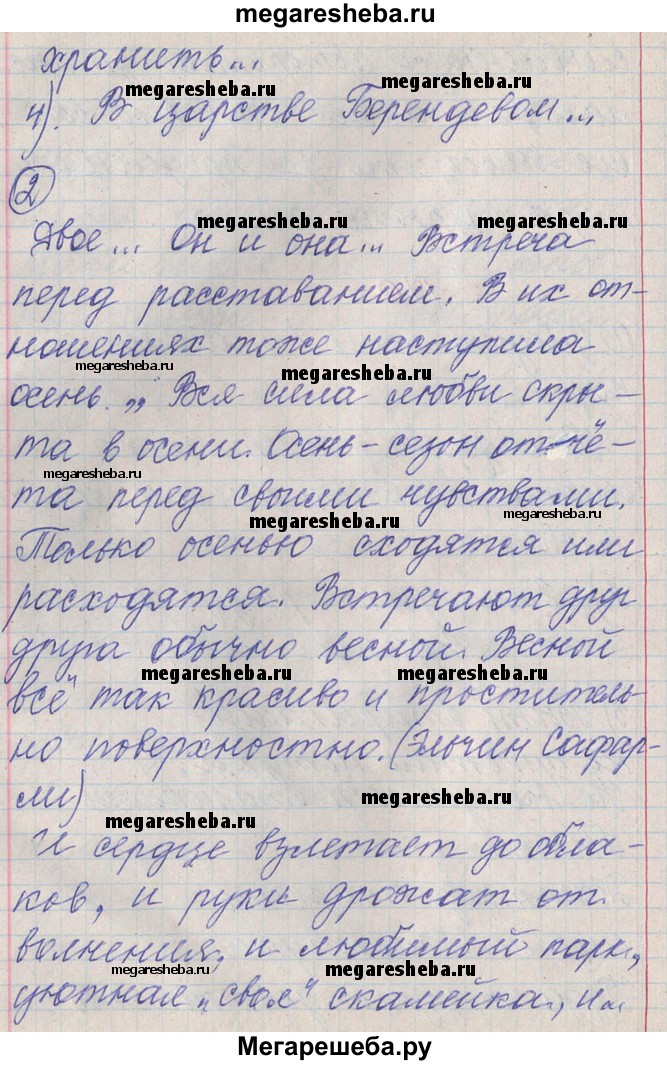 megaresheba.ru
хранить...
megaresheba.ru
4). В царстве Берендевом...
2
megaresheba.ru megaresheba.ru
Двое... Он и она... Встреча
перед расставанием. В их от-
ношениях тоже наступила
megaresheba.ru megaresheba.ru
осень. „Вся сила любви скры-
та в осени. Осень-сезон отчё-
megaresheba.ru
та перед своими чувствами.
megaresheba.ru megaresheba.ru
Только осенью сходятся или
расходятся. Встречают друг
друга обычно весной. Весной
megaresheba.ru megaresheba.ru
всё" так красиво и проститель-
но поверхностно. (Эльчин Сафар-
ли)
megaresheba.ru
megaresheba.ru
И сердце взлетает до обла-
ков, и руки дрожат от
волнения, и любимый парк,
megaresheba.ru megaresheba.ru
уютная „своя" скамейка, и...
Мегарешеба.ру